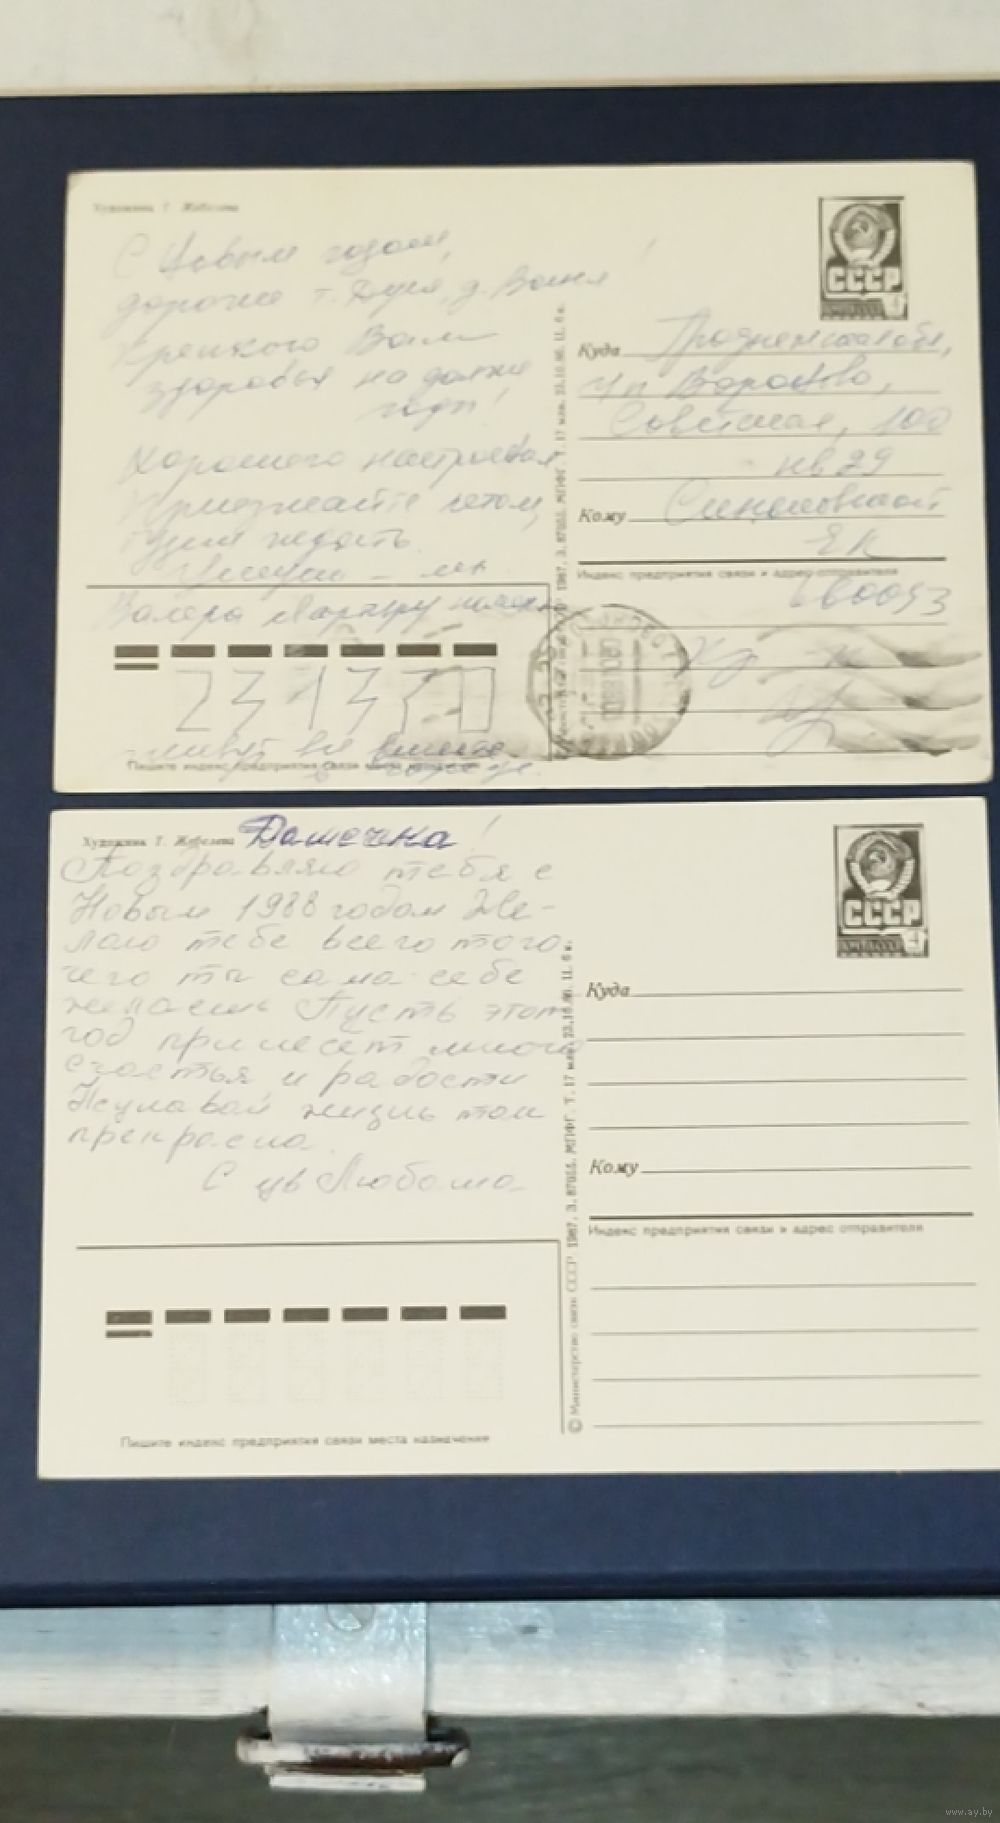 Художник Г. Жебелева
С Новым годом,
дорогие т. Дуся, д. Ваня!
Крепкого Вам
здоровья на долгие
годы!
Хорошего настроения
Приезжайте летом,
будем ждать.
Валера
живут все вместе
Пишите индекс предприятия связи места назначения
© Министерство связи СССР. 1987. З. 87055. МПФГ. Т. 17 млн. 23.10.86. Ц. 6 к.
СССР
4
Куда Гродненская обл,
г/п Вороново,
Советская, 100
кв 29
Кому
Е К
Индекс предприятия связи и адрес отправителя
231370
Художник Г. Жебелева Дашечка!
Поздравляю тебя с
Новым 1988 годом Же-
лаю тебе всего того
чего ты сама себе
желаешь Пусть этот
год принесет много
счастья и радости
жизнь так
прекрасна.
С ув Любаша
Пишите индекс предприятия связи места назначения
© Министерство связи СССР. 1987. З. 87055. МПФГ. Т. 17 млн. 23.10.86. Ц. 6 к.
СССР
ПОЧТА СССР 4
Куда
Кому
Индекс предприятия связи и адрес отправителя
www.ay.by